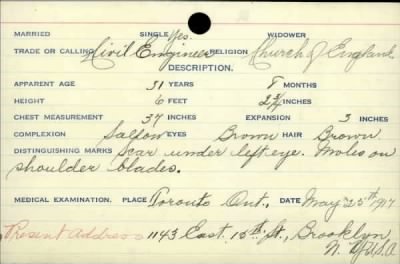 MARRIED SINGLE Yes. WIDOWER
TRADE OR CALLING Civil Engineer RELIGION Church of England
DESCRIPTION.
APPARENT AGE 31 YEARS 8 MONTHS
HEIGHT 6 FEET 2¾ INCHES
CHEST MEASUREMENT 37 INCHES EXPANSION 3 INCHES
COMPLEXION Sallow EYES Brown HAIR Brown
DISTINGUISHING MARKS Scar under left eye. Moles on
shoulder blades.
MEDICAL EXAMINATION. PLACE Toronto Ont., DATE May 25th 1917
Present Address 1143 East 15th St., Brooklyn
N. Y. U.S.A